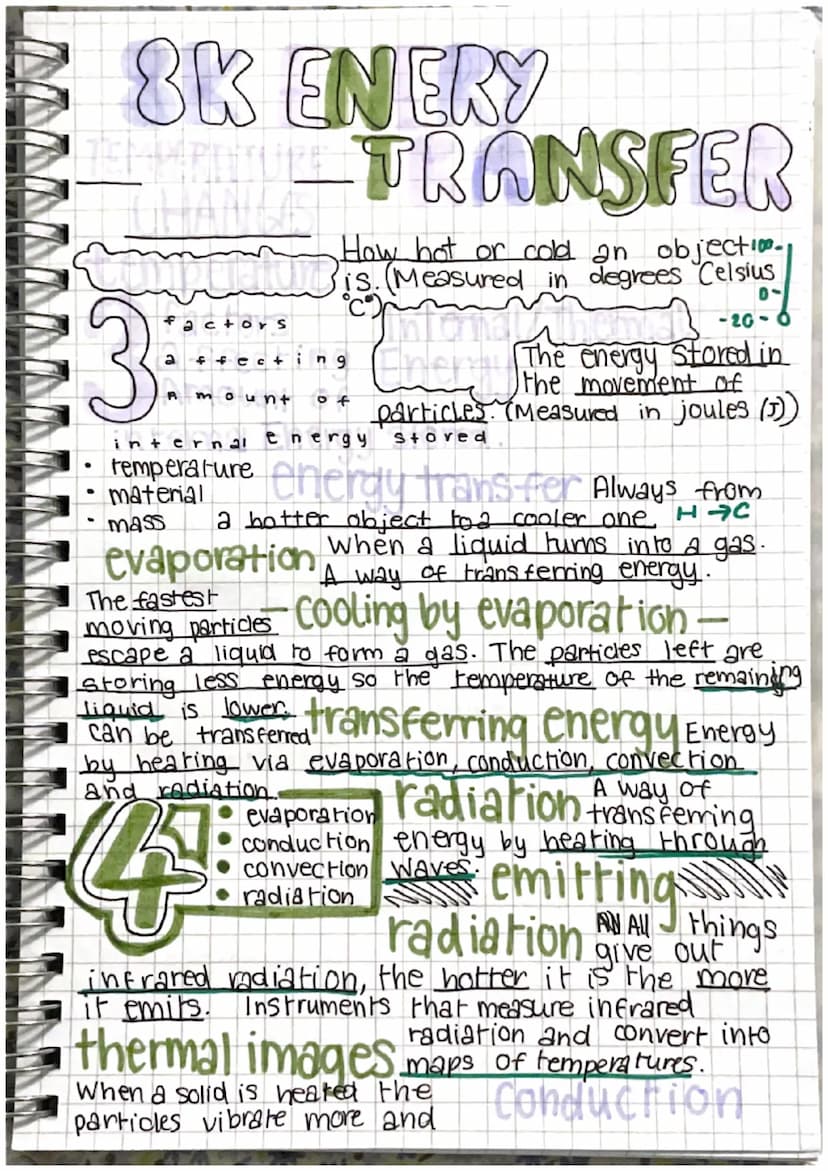 8K ENERY
TRANSFER
TEMPERATURE
CHANGES
temperature
How hot or cold an object
is. (Measured in degrees Celsius
°C)
100-
0-
-20-
3 factors
affecting
Amount of
internal energy stored
Internal/Thermal
Energy
The energy stored in
the movement of
particles. (Measured in joules (J))
• temperature
• material
• mass
energy transfer Always from
a hotter object to a cooler one H → C
evaporation When a liquid turns into a gas.
A way of transferring energy.
The fastest
moving particles
- cooling by evaporation -
escape a liquid to form a gas. The particles left are
storing less energy so the temperature of the remaining
liquid is lower.
transferring energy Energy
can be transferred
by heating via evaporation, conduction, convection
and radiation.
4
• evaporation
• conduction
• convection
• radiation
radiation A way of
transferring
energy by heating through
waves.
emitting
radiation All things
give out
infrared radiation, the hotter it is the more
it emits. Instruments that measure infrared
thermal images radiation and convert into
maps of temperatures.
When a solid is heated the
particles vibrate more and
conduction